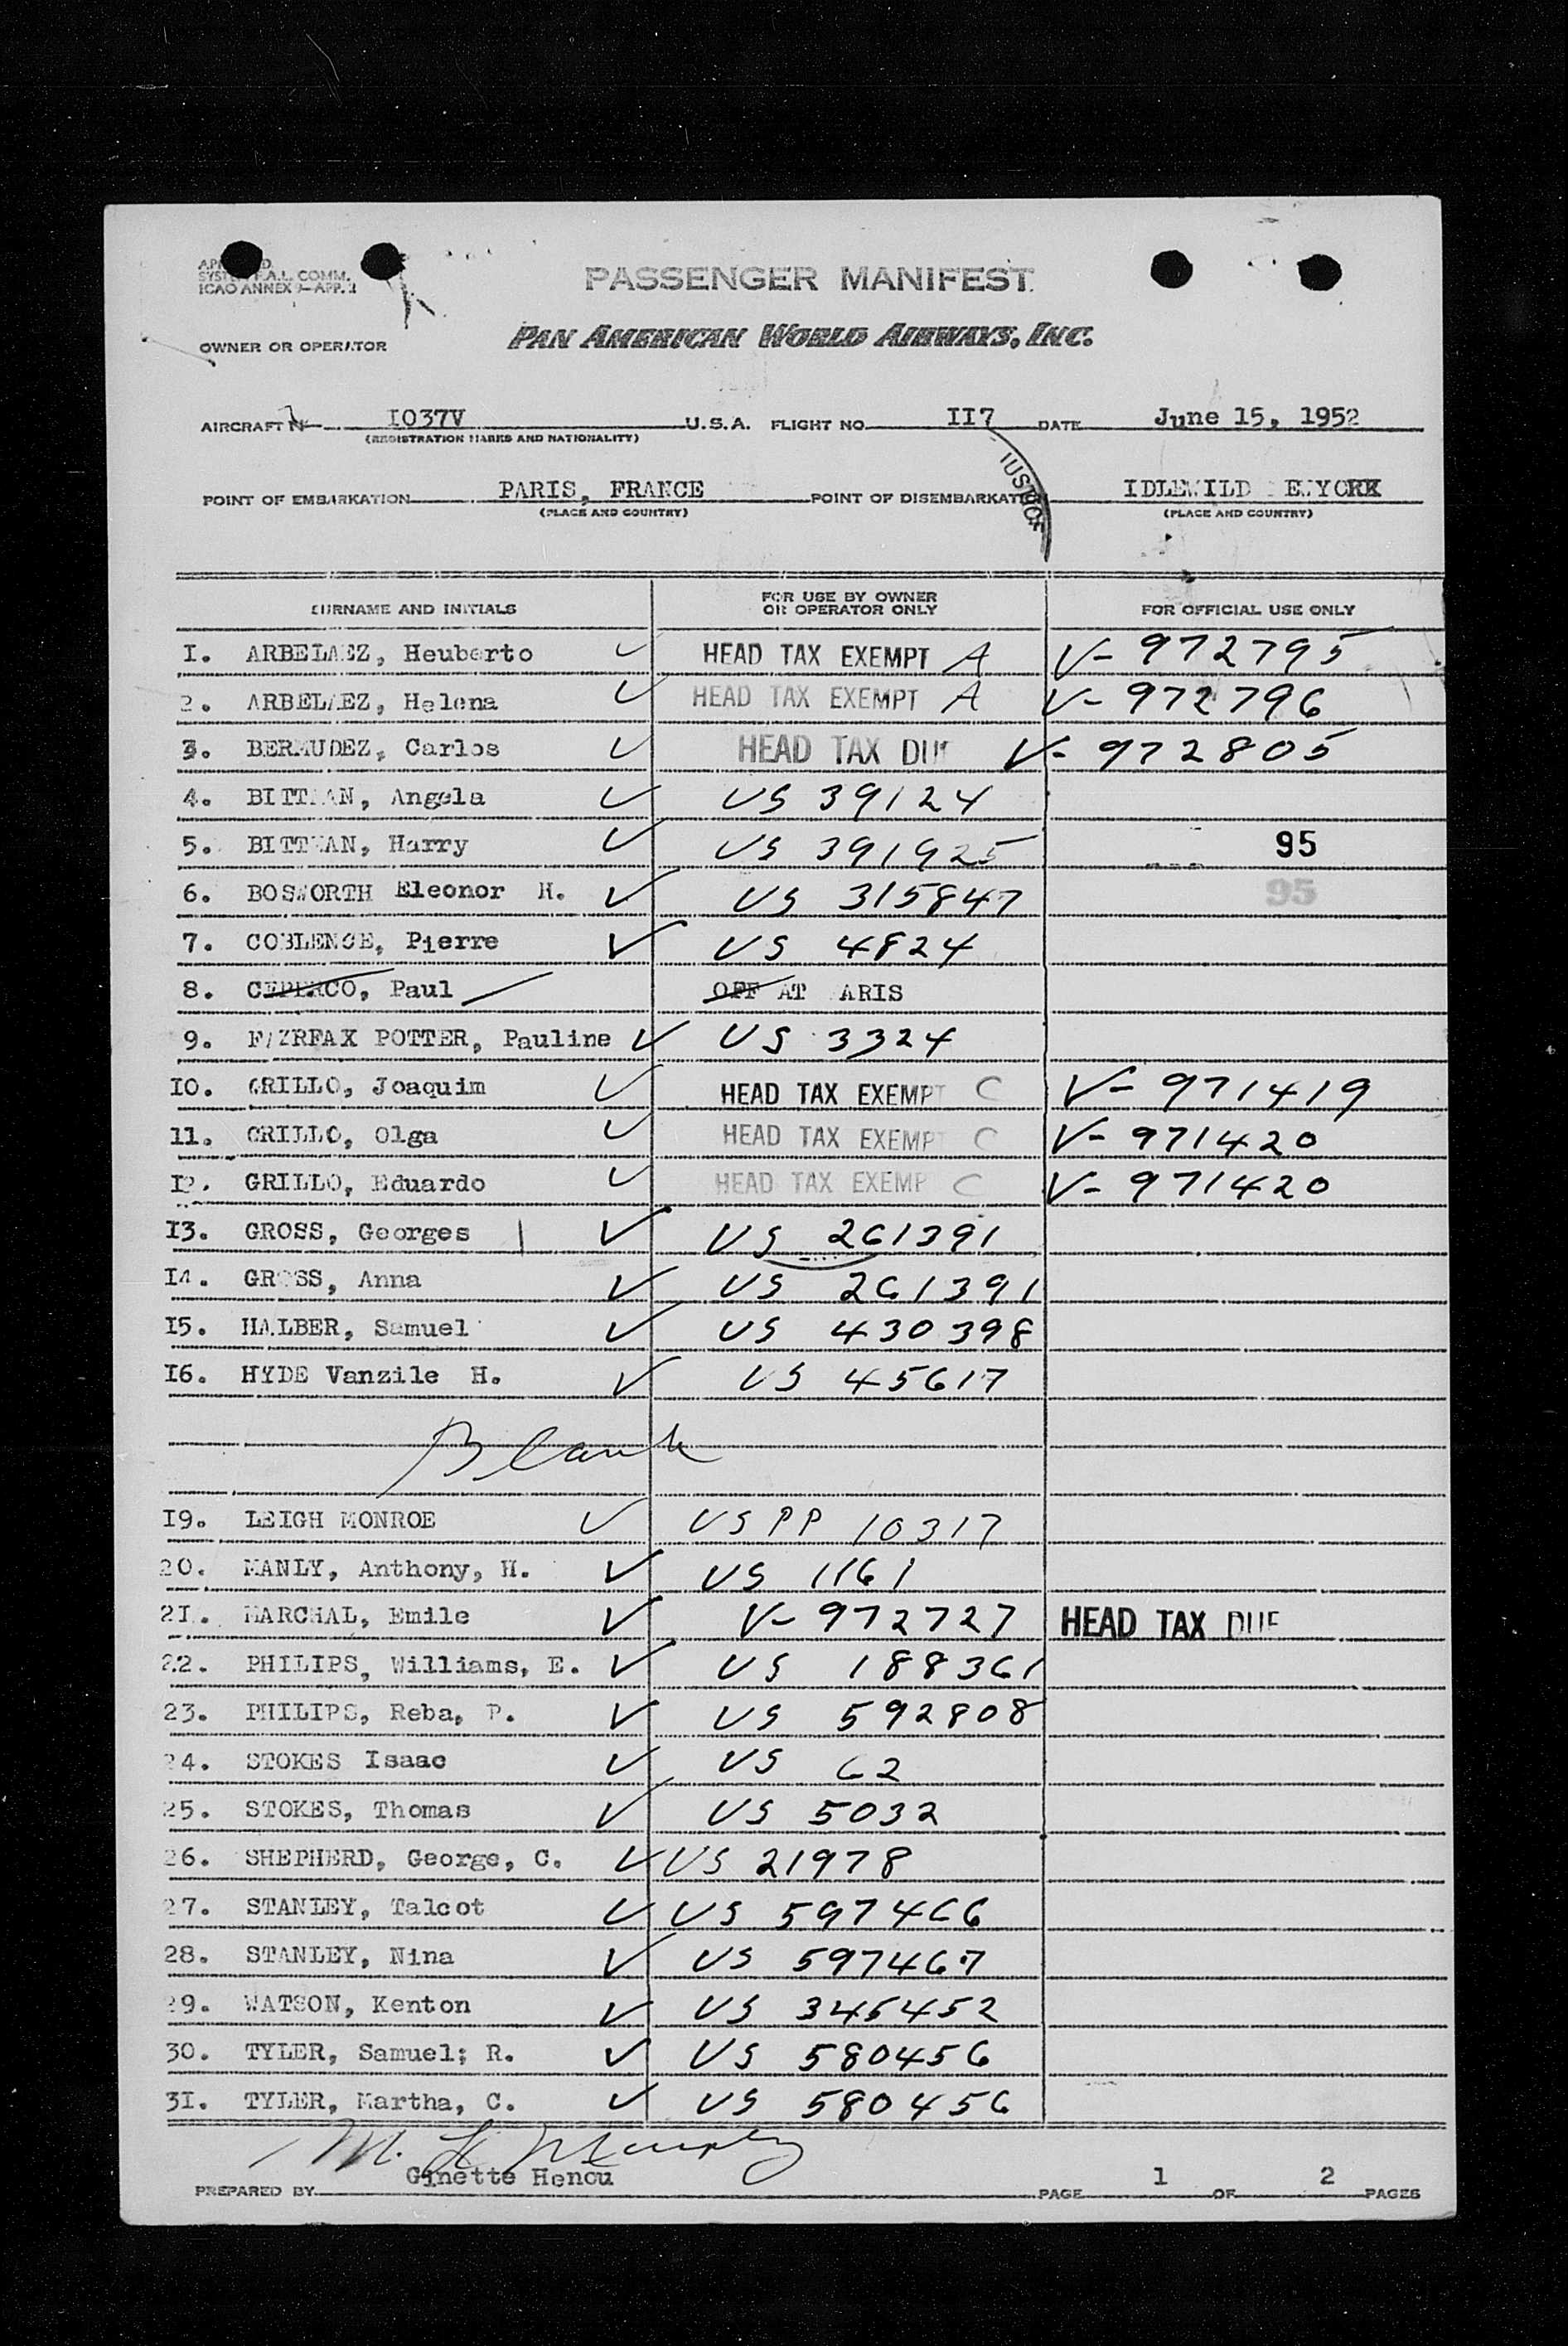 SYSTEM F.A.L. COMM.
ICAO ANNEX 9—APP. 3
PASSENGER MANIFEST
PAN AMERICAN WORLD AIRWAYS, INC.
OWNER OR OPERATOR
AIRCRAFT N I037V U.S.A. FLIGHT NO. II7 DATE June 15, 1952
(REGISTRATION MARKS AND NATIONALITY)
POINT OF EMBARKATION PARIS, FRANCE POINT OF DISEMBARKATION IDLEWILD NEWYORK
(PLACE AND COUNTRY) (PLACE AND COUNTRY)
SURNAME AND INITIALS FOR USE BY OWNER OR OPERATOR ONLY FOR OFFICIAL USE ONLY
I. ARBELAEZ, Heuberto ✓ HEAD TAX EXEMPT A V- 972795
2. ARBELAEZ, Helena ✓ HEAD TAX EXEMPT A V- 972796
3. BERMUDEZ, Carlos ✓ HEAD TAX DUE V- 972805
4. BITTMAN, Angela ✓ US 39124
5. BITTMAN, Harry ✓ US 391925 95
6. BOSWORTH Eleonor H. ✓ US 315847 95
7. COBLENCE, Pierre ✓ US 4824
8. Paul OFF AT PARIS
9. FAIRFAX POTTER, Pauline ✓ US 3324
I0. GRILLO, Joaquim ✓ HEAD TAX EXEMPT C V- 971419
11. GRILLO, Olga ✓ HEAD TAX EXEMPT C V- 971420
I2. GRILLO, Eduardo ✓ HEAD TAX EXEMPT C V- 971420
I3. GROSS, Georges ✓ US 261391
I4. GROSS, Anna ✓ US 261391
I5. HALBER, Samuel ✓ US 430398
I6. HYDE Vanzile H. ✓ US 45617
Blank
I9. LEIGH MONROE ✓ US PP 10317
20. MANLY, Anthony, H. ✓ US 1161
2I. MARCHAL, Emile ✓ V- 972727 HEAD TAX DUE
22. PHILIPS, Williams, E. ✓ US 188361
23. PHILIPS, Reba, P. ✓ US 592808
24. STOKES Isaac ✓ US 62
25. STOKES, Thomas ✓ US 5032
26. SHEPHERD, George, C. ✓ US 21978
27. STANLEY, Talcot ✓ US 597466
28. STANLEY, Nina ✓ US 597467
29. WATSON, Kenton ✓ US 345452
30. TYLER, Samuel; R. ✓ US 580456
3I. TYLER, Martha, C. ✓ US 580456
PREPARED BY Ginette Henou PAGE 1 OF 2 PAGES